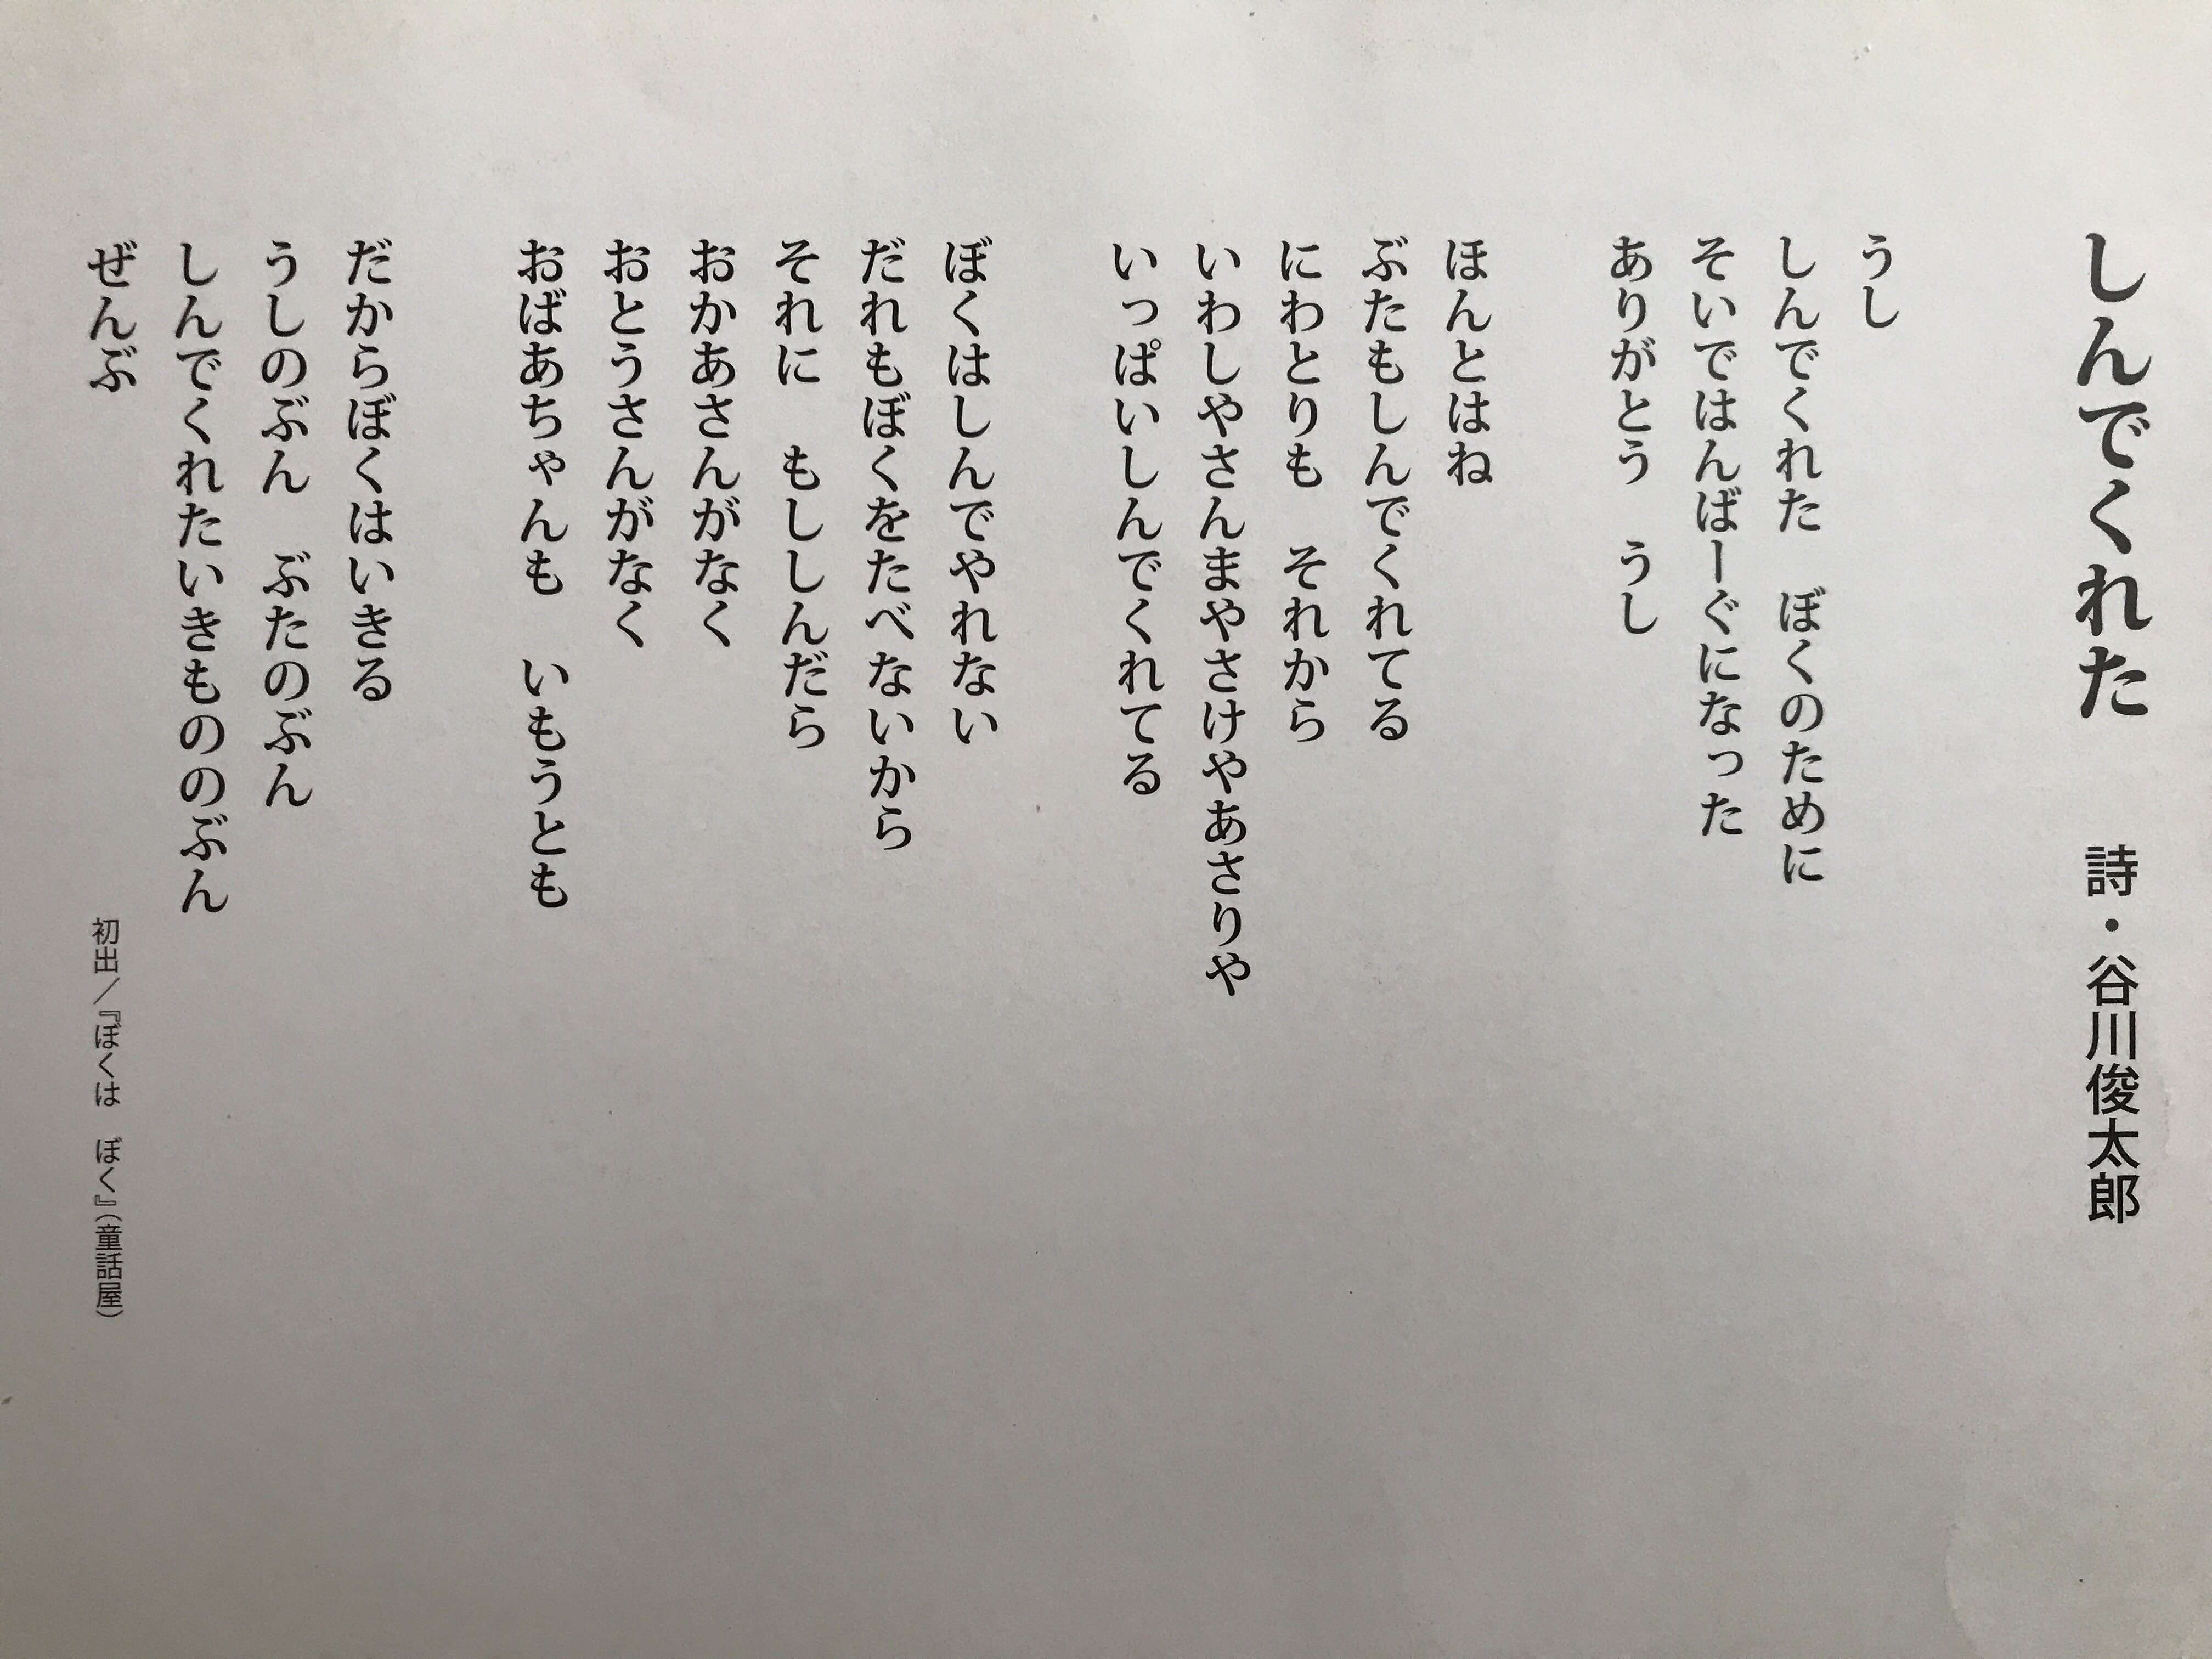 しんでくれた　詩・谷川俊太郎
うし
しんでくれた　ぼくのために
そいではんばーぐになった
ありがとう　うし
ほんとはね
ぶたもしんでくれてる
にわとりも　それから
いわしやさんまやさけやあさりや
いっぱいしんでくれてる
ぼくはしんでやれない
だれもぼくをたべないから
それに　もししんだら
おかあさんがなく
おとうさんがなく
おばあちゃんも　いもうとも
だからぼくはいきる
うしのぶん　ぶたのぶん
しんでくれたいきもののぶん
ぜんぶ
初出／『ぼくは　ぼく』（童話屋）